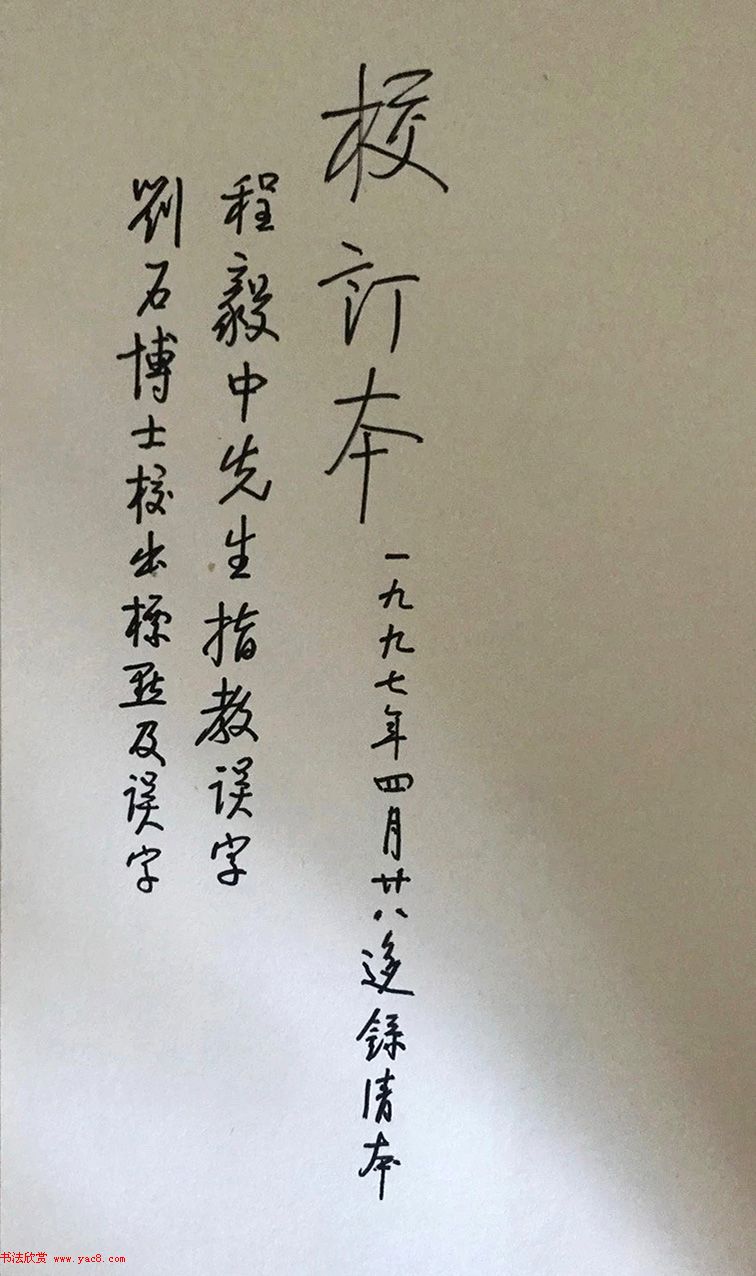 校訂本 一九九七年四月廿八迻錄清本
程毅中先生指教誤字
劉石博士校出標點及誤字
书法欣赏 www.yac8.com